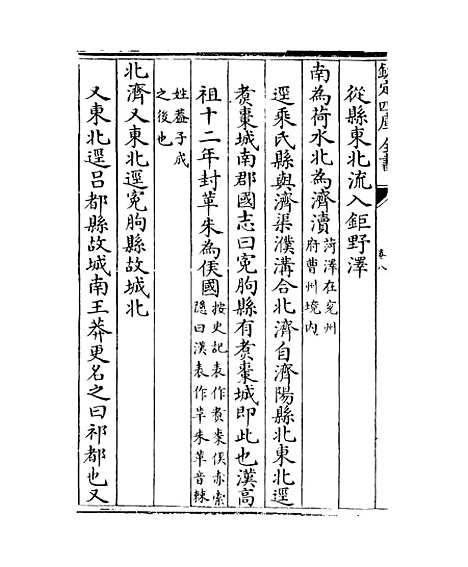 欽定四庫全書
卷八
從縣東北流入鉅野澤
南為荷水北為濟瀆菏澤在兗州
府曹州境内
逕乗氏縣與濟渠濮溝合北濟自濟陽縣北東北逕
煑棗城南郡國志曰寃朐縣有煑棗城即此也漢高
祖十二年封革朱為侯國按史記表作煑棗侯赤索
隱曰漢表作革朱革音棘
姓蓋子成
之後也
北濟又東北逕寃朐縣故城北
又東北逕吕都縣故城南王莽更名之曰祁都也又